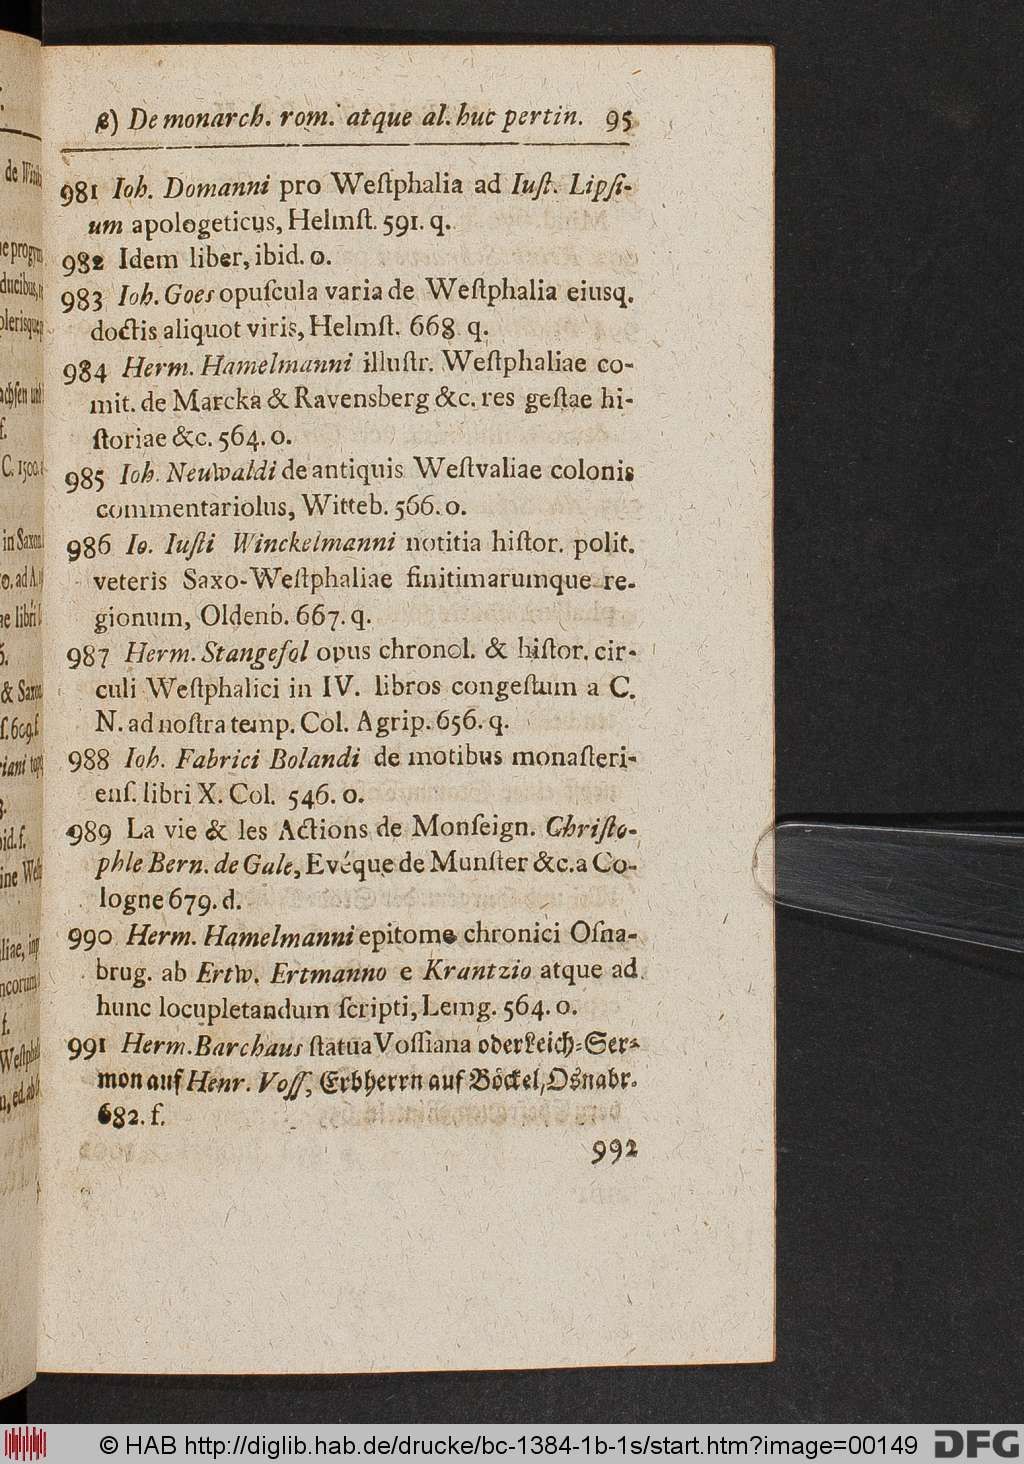 β) De monarch. rom. atque al. huc pertin. 95
981 Ioh. Domanni pro Weſtphalia ad Iuſt. Lipſi-
um apologeticus, Helmſt. 591. q.
982 Idem liber, ibid. o.
983 Ioh. Goes opuſcula varia de Weſtphalia eiusq.
doctis aliquot viris, Helmſt. 668 q.
984 Herm. Hamelmanni illuſtr. Weſtphaliae co-
mit. de Marcka & Ravensberg &c. res geſtae hi-
ſtoriae &c. 564. o.
985 Ioh. Neuwaldi de antiquis Weſtvaliae colonis
commentariolus, Witteb. 566. o.
986 Io. Iuſti Winckelmanni notitia hiſtor. polit.
veteris Saxo-Weſtphaliae finitimarumque re-
gionum, Oldenb. 667. q.
987 Herm. Stangefol opus chronol. & hiſtor. cir-
culi Weſtphalici in IV. libros congeſtum a C.
N. ad noſtra temp. Col. Agrip. 656. q.
988 Ioh. Fabrici Bolandi de motibus monaſteri-
enſ. libri X. Col. 546. o.
989 La vie & les Actions de Monſeign. Chriſto-
phle Bern. de Gale, Evéque de Munſter &c. a Co-
logne 679. d.
990 Herm. Hamelmanni epitome chronici Oſna-
brug. ab Ertw. Ertmanno e Krantzio atque ad
hunc locupletandum ſcripti, Lemg. 564. o.
991 Herm. Barchaus ſtatua Voſſiana oder Leich-Ser-
mon auf Henr. Voſſ, Erbherrn auf Böckel, Osnabr.
682. f.
992
© HAB http://diglib.hab.de/drucke/bc-1384-1b-1s/start.htm?image=00149 DFG